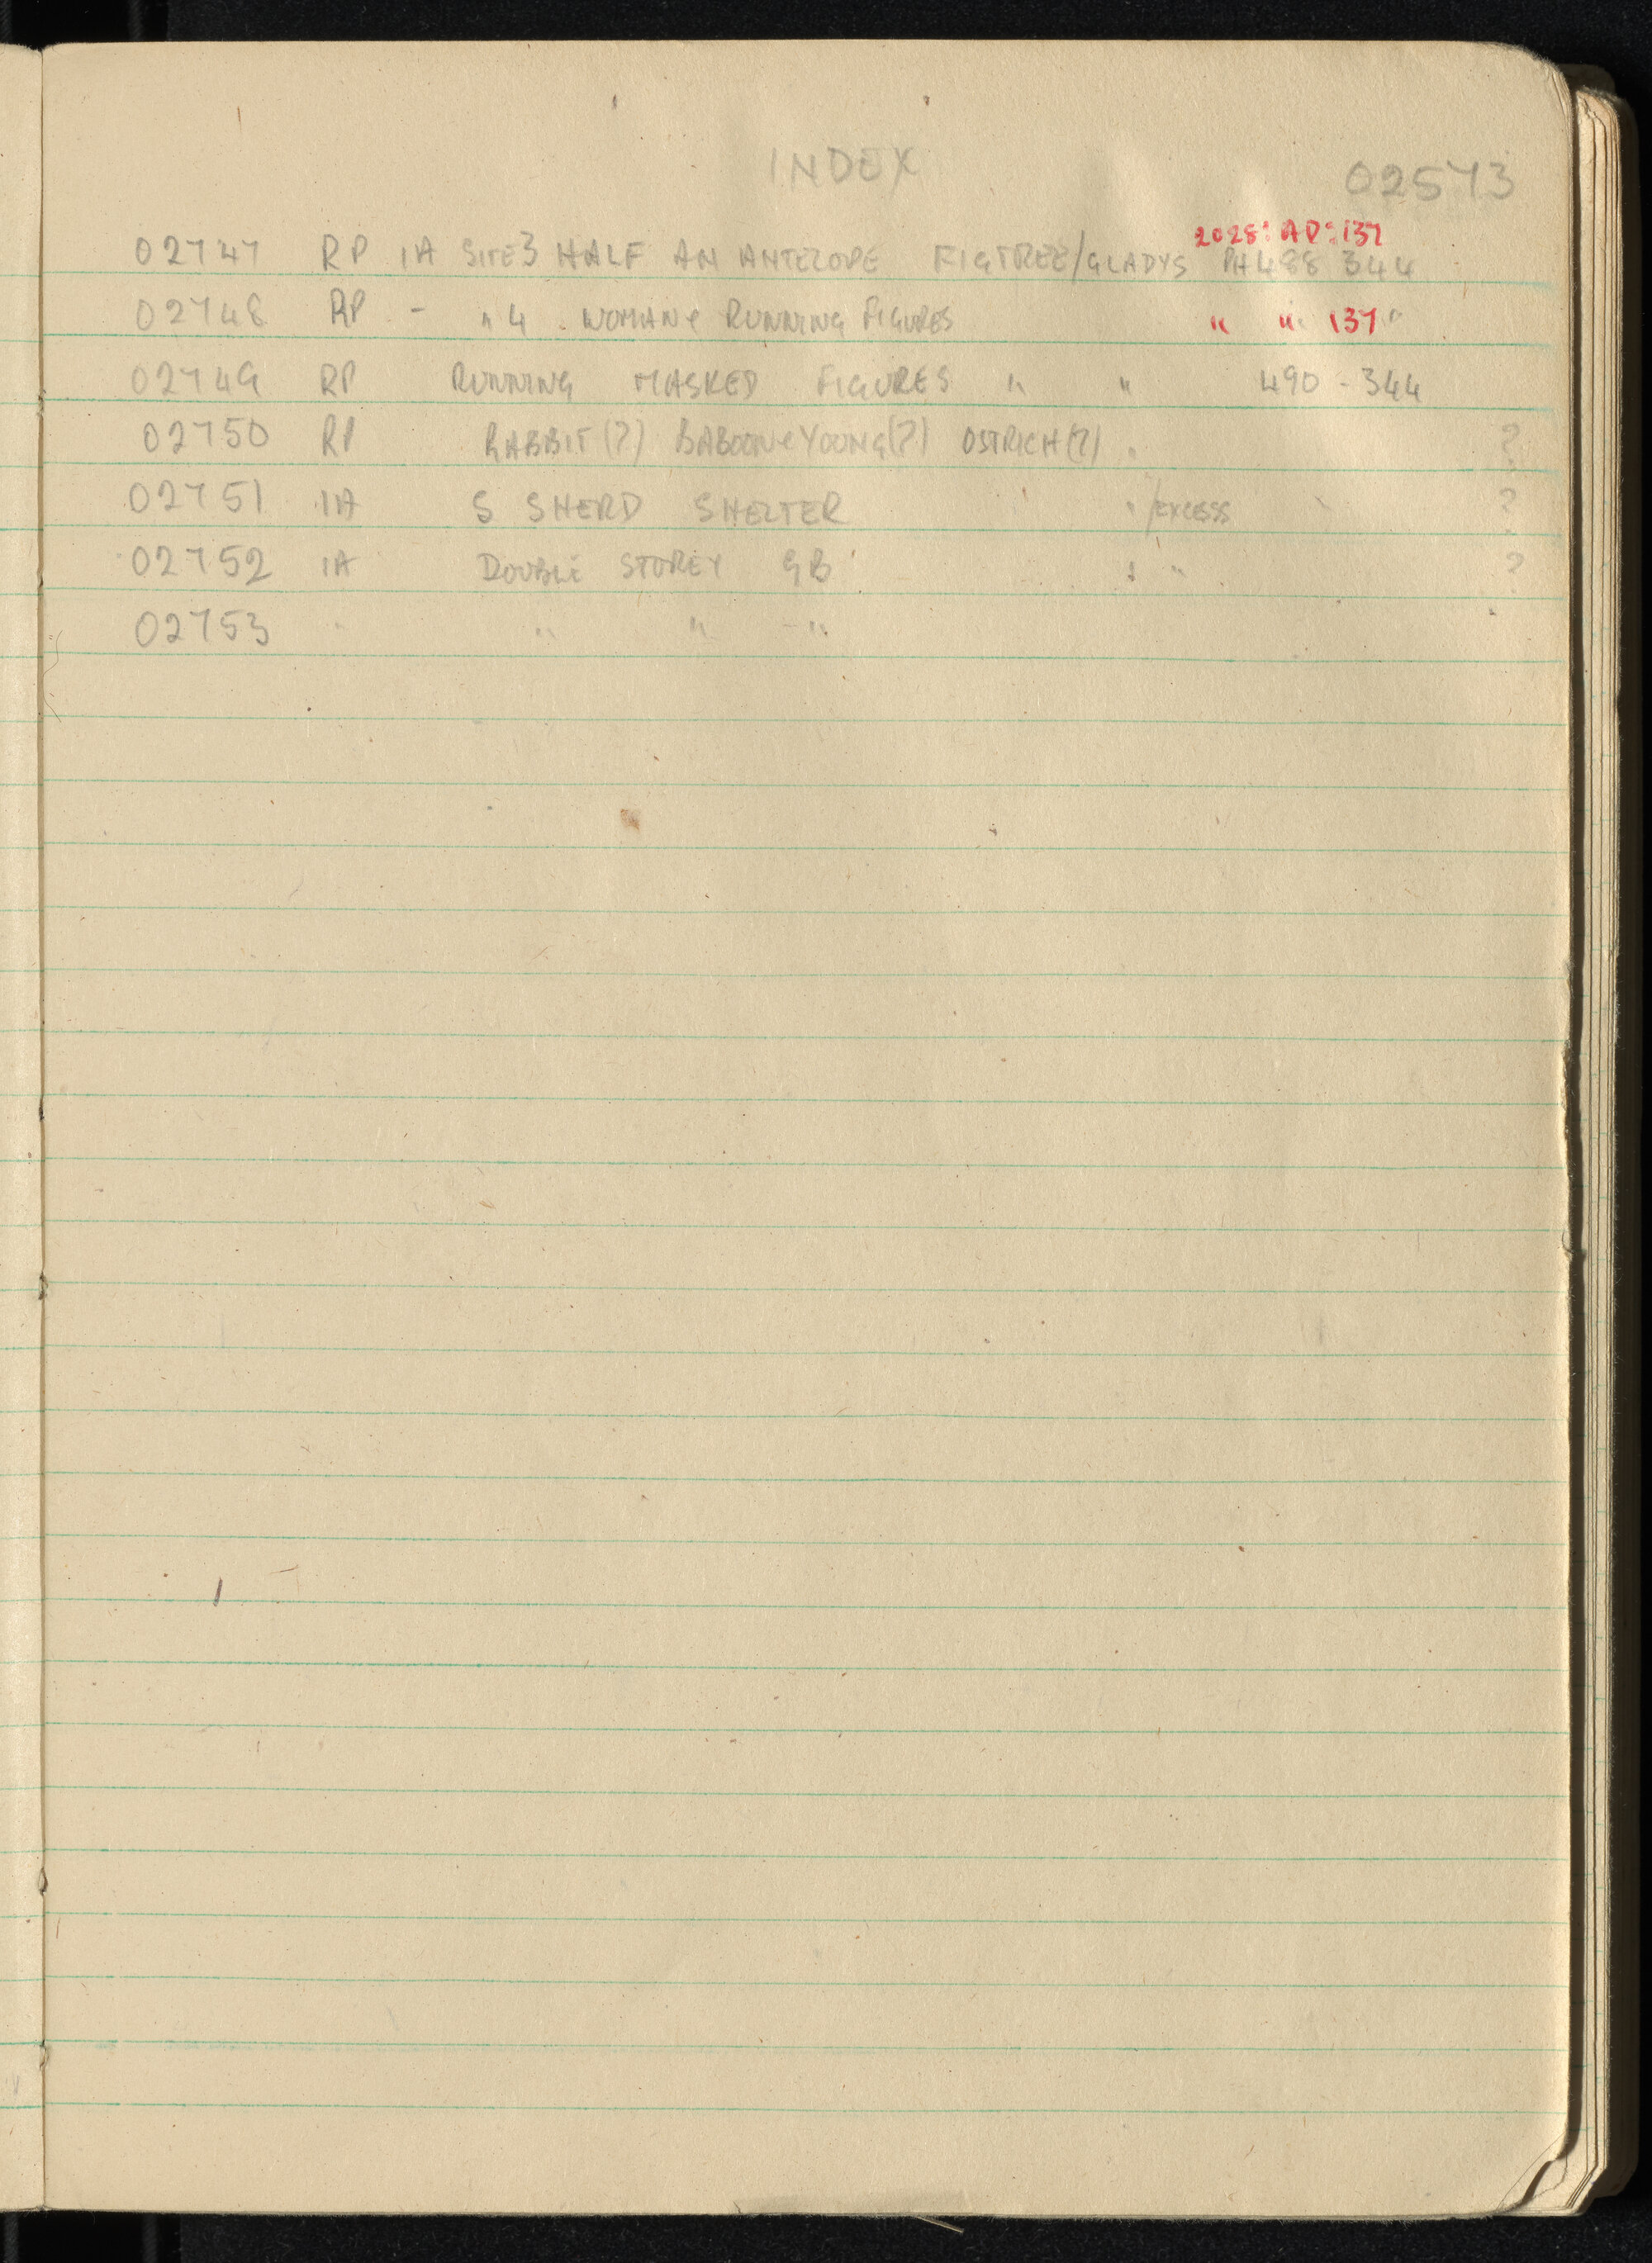 INDEX
02573
2028:AD:137
02747 RP IA SITE 3 HALF AN ANTELOPE FIGTREE/GLADYS PH 488 344
02748 RP - " 4 WOMAN & RUNNING FIGURES " " 137 "
02749 RP RUNNING MASKED FIGURES " " 490 - 344
02750 RP RABBIT (?) BABOON & YOUNG (?) OSTRICH (?) " ?
02751 IA S SHERD SHELTER " /EXCESS ?
02752 IA DOUBLE STOREY GB " " ?
02753 " " " - "